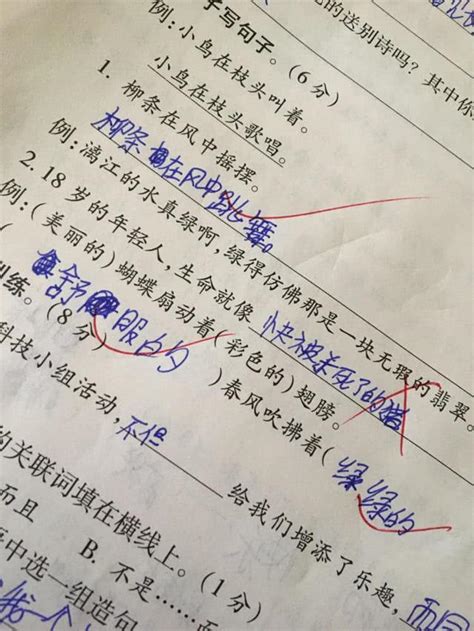 的送别诗吗？其中你
子写句子。（6分）
例：小鸟在枝头叫着。
小鸟在枝头歌唱。
1. 柳条在风中摇摆。
柳条在风中跳舞。
例：漓江的水真绿啊，绿得仿佛那是一块无瑕的翡翠。
2. 18岁的年轻人，生命就像快被杀死了的猪
例：（美丽的）蝴蝶扇动着（彩色的）翅膀。
（舒服的）春风吹拂着（绿绿的
训练。（8分）
科技小组活动，不但给我们增添了乐趣，而且
的关联词填在横线上。（1分）
而且 B. 不是……而
中选一组造句
一个